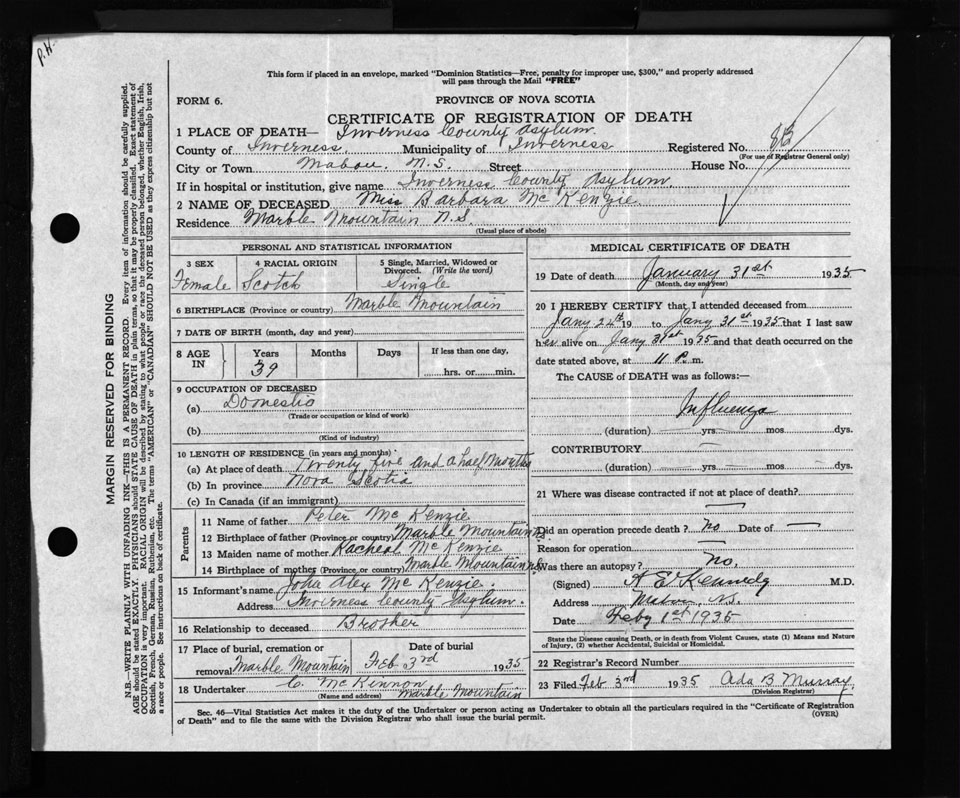 P.W.
This form if placed in an envelope, marked "Dominion Statistics—Free, penalty for improper use, $300," and properly addressed
will pass through the Mail "FREE"
FORM 6.
PROVINCE OF NOVA SCOTIA
CERTIFICATE OF REGISTRATION OF DEATH
1 PLACE OF DEATH— Inverness County Asylum.
County of Inverness Municipality of Inverness Registered No.
(For use of Registrar General only)
City or Town Mabou. N.S. Street House No.
If in hospital or institution, give name Inverness County Asylum.
2 NAME OF DECEASED Miss Barbara McKenzie.
Residence Marble Mountain N.S.
(Usual place of abode)
PERSONAL AND STATISTICAL INFORMATION
3 SEX 4 RACIAL ORIGIN 5 Single, Married, Widowed or
Divorced. (Write the word)
Female Scotch Single
6 BIRTHPLACE (Province or county) Marble Mountain
7 DATE OF BIRTH (month, day and year)
8 AGE IN Years Months Days If less than one day,
39 hrs. or min.
9 OCCUPATION OF DECEASED
(a) Domestic
(Trade or occupation or kind of work)
(b)
(Kind of industry)
10 LENGTH OF RESIDENCE (in years and months)
(a) At place of death Twenty five and a half Months
(b) In province Nova Scotia
(c) In Canada (if an immigrant)
Parents
11 Name of father Peter McKenzie
12 Birthplace of father (Province or country) Marble Mountain
13 Maiden name of mother Racheal McKenzie
14 Birthplace of mother (Province or country) Marble Mountain
15 Informant's name John Alex McKenzie.
Address Inverness County Asylum.
16 Relationship to deceased Brother
17 Place of burial, cremation or Date of burial
removal Marble Mountain Feb 3rd 1935
18 Undertaker C. McKinnon
(Name and address) Marble Mountain
MEDICAL CERTIFICATE OF DEATH
19 Date of death January 31st 1935
(Month, day and year)
20 I HEREBY CERTIFY that I attended deceased from
Jany 24th 19 to Jany 31st 1935 that I last saw
her alive on Jany 31st 1935 and that death occurred on the
date stated above, at 11 P. m.
The CAUSE of DEATH was as follows:—
Influenza
(duration) yrs. mos. dys.
CONTRIBUTORY
(duration) yrs. mos. dys.
21 Where was disease contracted if not at place of death?
Did an operation precede death? No Date of —
Reason for operation —
Was there an autopsy? No.
(Signed) A E Kennedy M.D.
Address Mabou, N.S.
Date Feby 1st 1935
State the Disease causing Death, or in death from Violent Causes, state (1) Means and Nature
of Injury, (2) whether Accidental, Suicidal or Homicidal.
22 Registrar's Record Number
23 Filed Feb 3rd 1935 Ada B Murray
(Division Registrar)
Sec. 46—Vital Statistics Act makes it the duty of the Undertaker or person acting as Undertaker to obtain all the particulars required in the "Certificate of Registration
of Death" and to file the same with the Division Registrar who shall issue the burial permit. (OVER)
MARGIN RESERVED FOR BINDING
N.B.—WRITE PLAINLY WITH UNFADING INK—THIS IS A PERMANENT RECORD. Every item of information should be carefully supplied.
AGE should be stated EXACTLY. PHYSICIANS should STATE CAUSE OF DEATH in plain terms, so that it may be properly classified. Exact statement of
OCCUPATION is very important. RACIAL ORIGIN will be described by stating to what people or race the deceased person belonged, whether English, Irish,
Scottish, French, German, Russian, Ruthenian, etc. The terms "AMERICAN" or "CANADIAN" SHOULD NOT BE USED as they express citizenship but not
a race or people. See instructions on back of certificate.